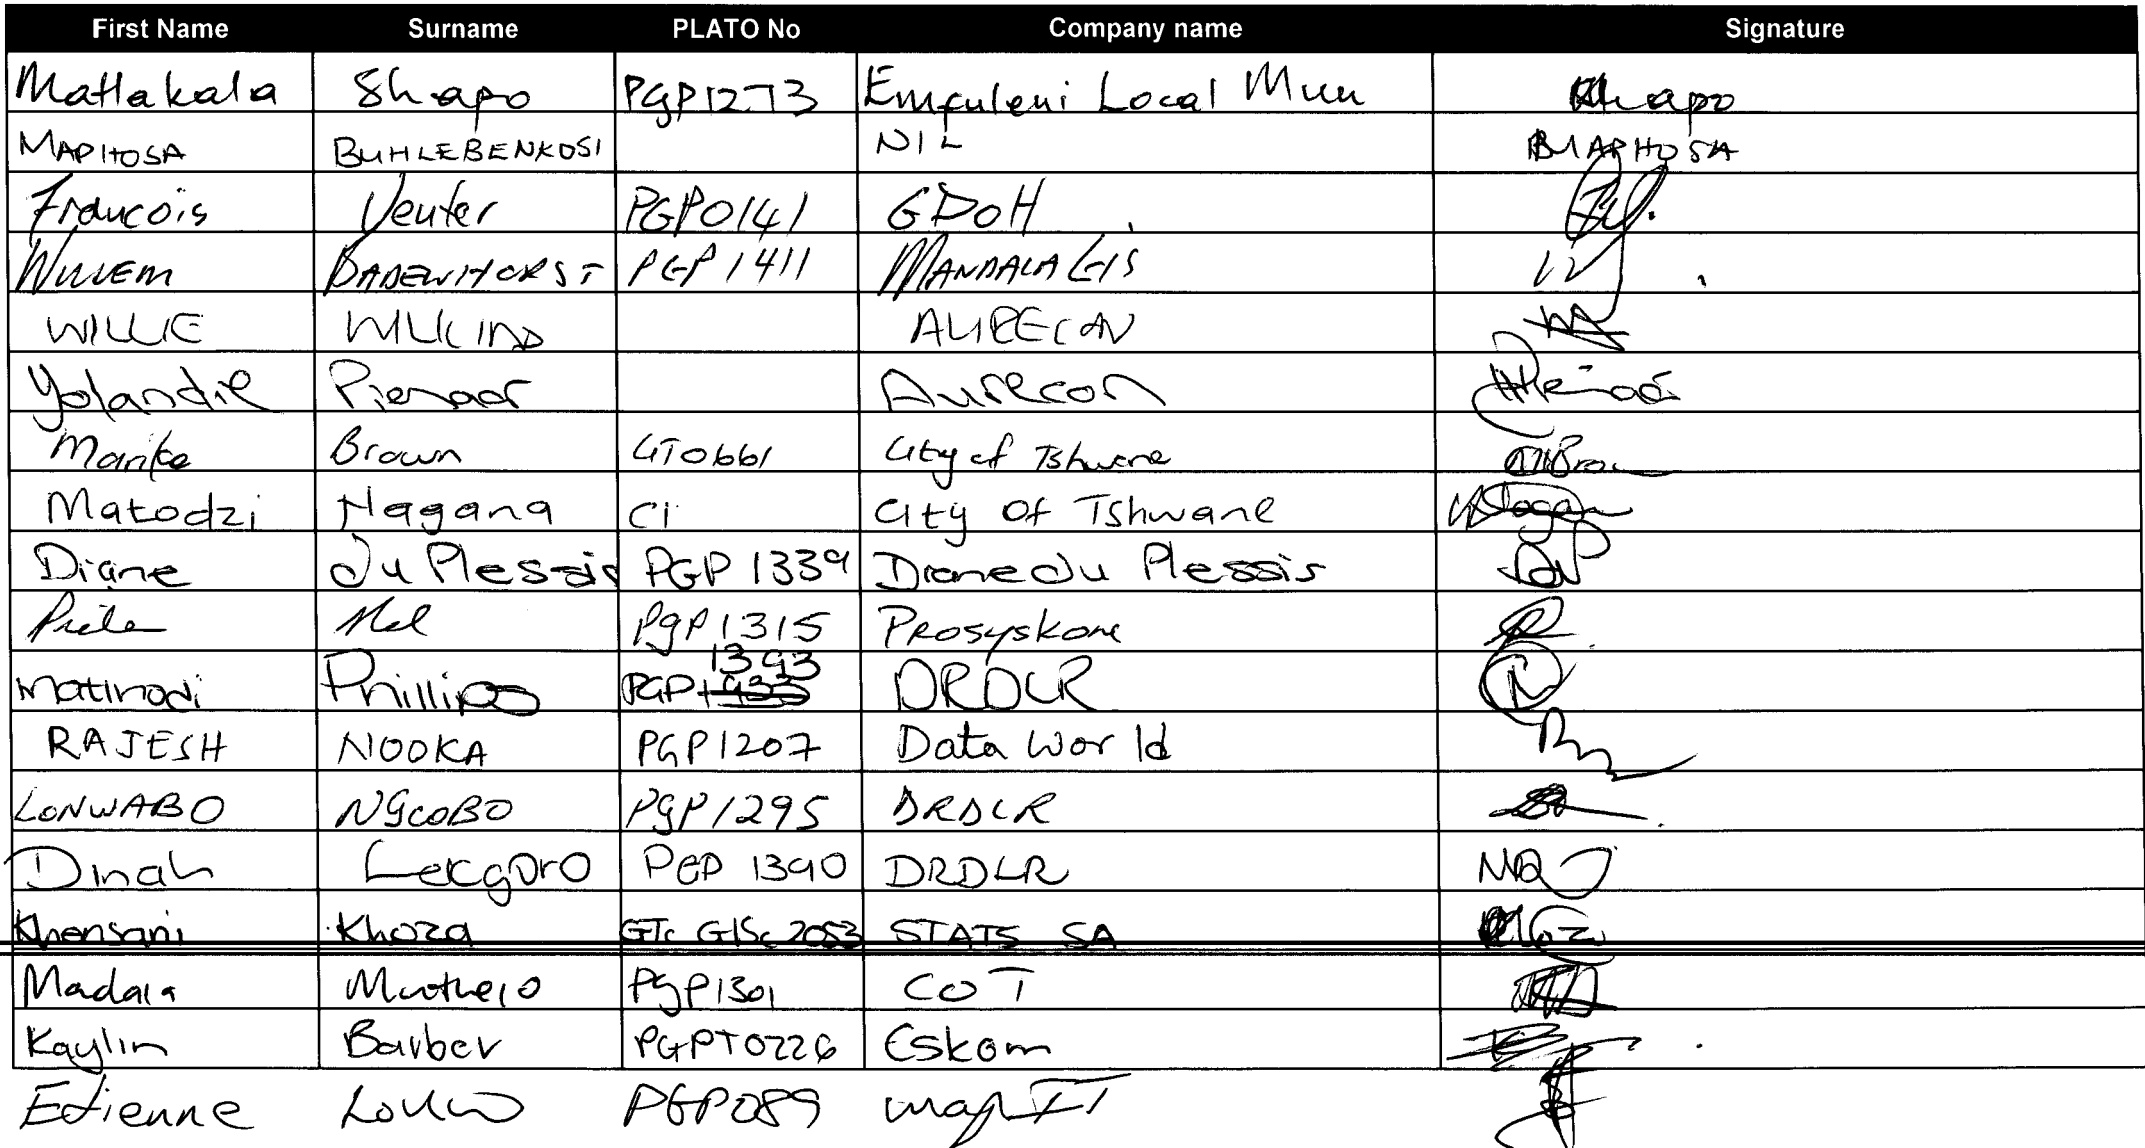 First Name Surname PLATO No Company name Signature
Matlakala Shapo PGP1273 Emfuleni Local Mun Shapo
MAPHOSA BUHLEBENKOSI NIL BMAPHOSA
Francois Venter PGP0141 GDOH
WILLEM BADENHORST PGP1411 MANDALA GIS
WILLIE AURECON
Yolandie Pienaar Aurecon
Marike Brown GT0661 City of Tshwane MBrow
Matodzi Nagana Ci City Of Tshwane
Diane du Plessis PGP 1339 Diane du Plessis DdP
Nel PGP1315 Prosyskone
Matimodi Phillips 1393 PGP1933 DRDLR
RAJESH NOOKA PGP1207 Data World
LONWABO NGCOBO PGP1295 DRDLR
Dinah Lekgoro PGP 1390 DRDLR
Khensani Khoza GTc GISc 2053 STATS SA
Madala PGP1301 COT
Kaylin Barber PGPT0226 Eskom
Etienne Louw PGP089 mapIT